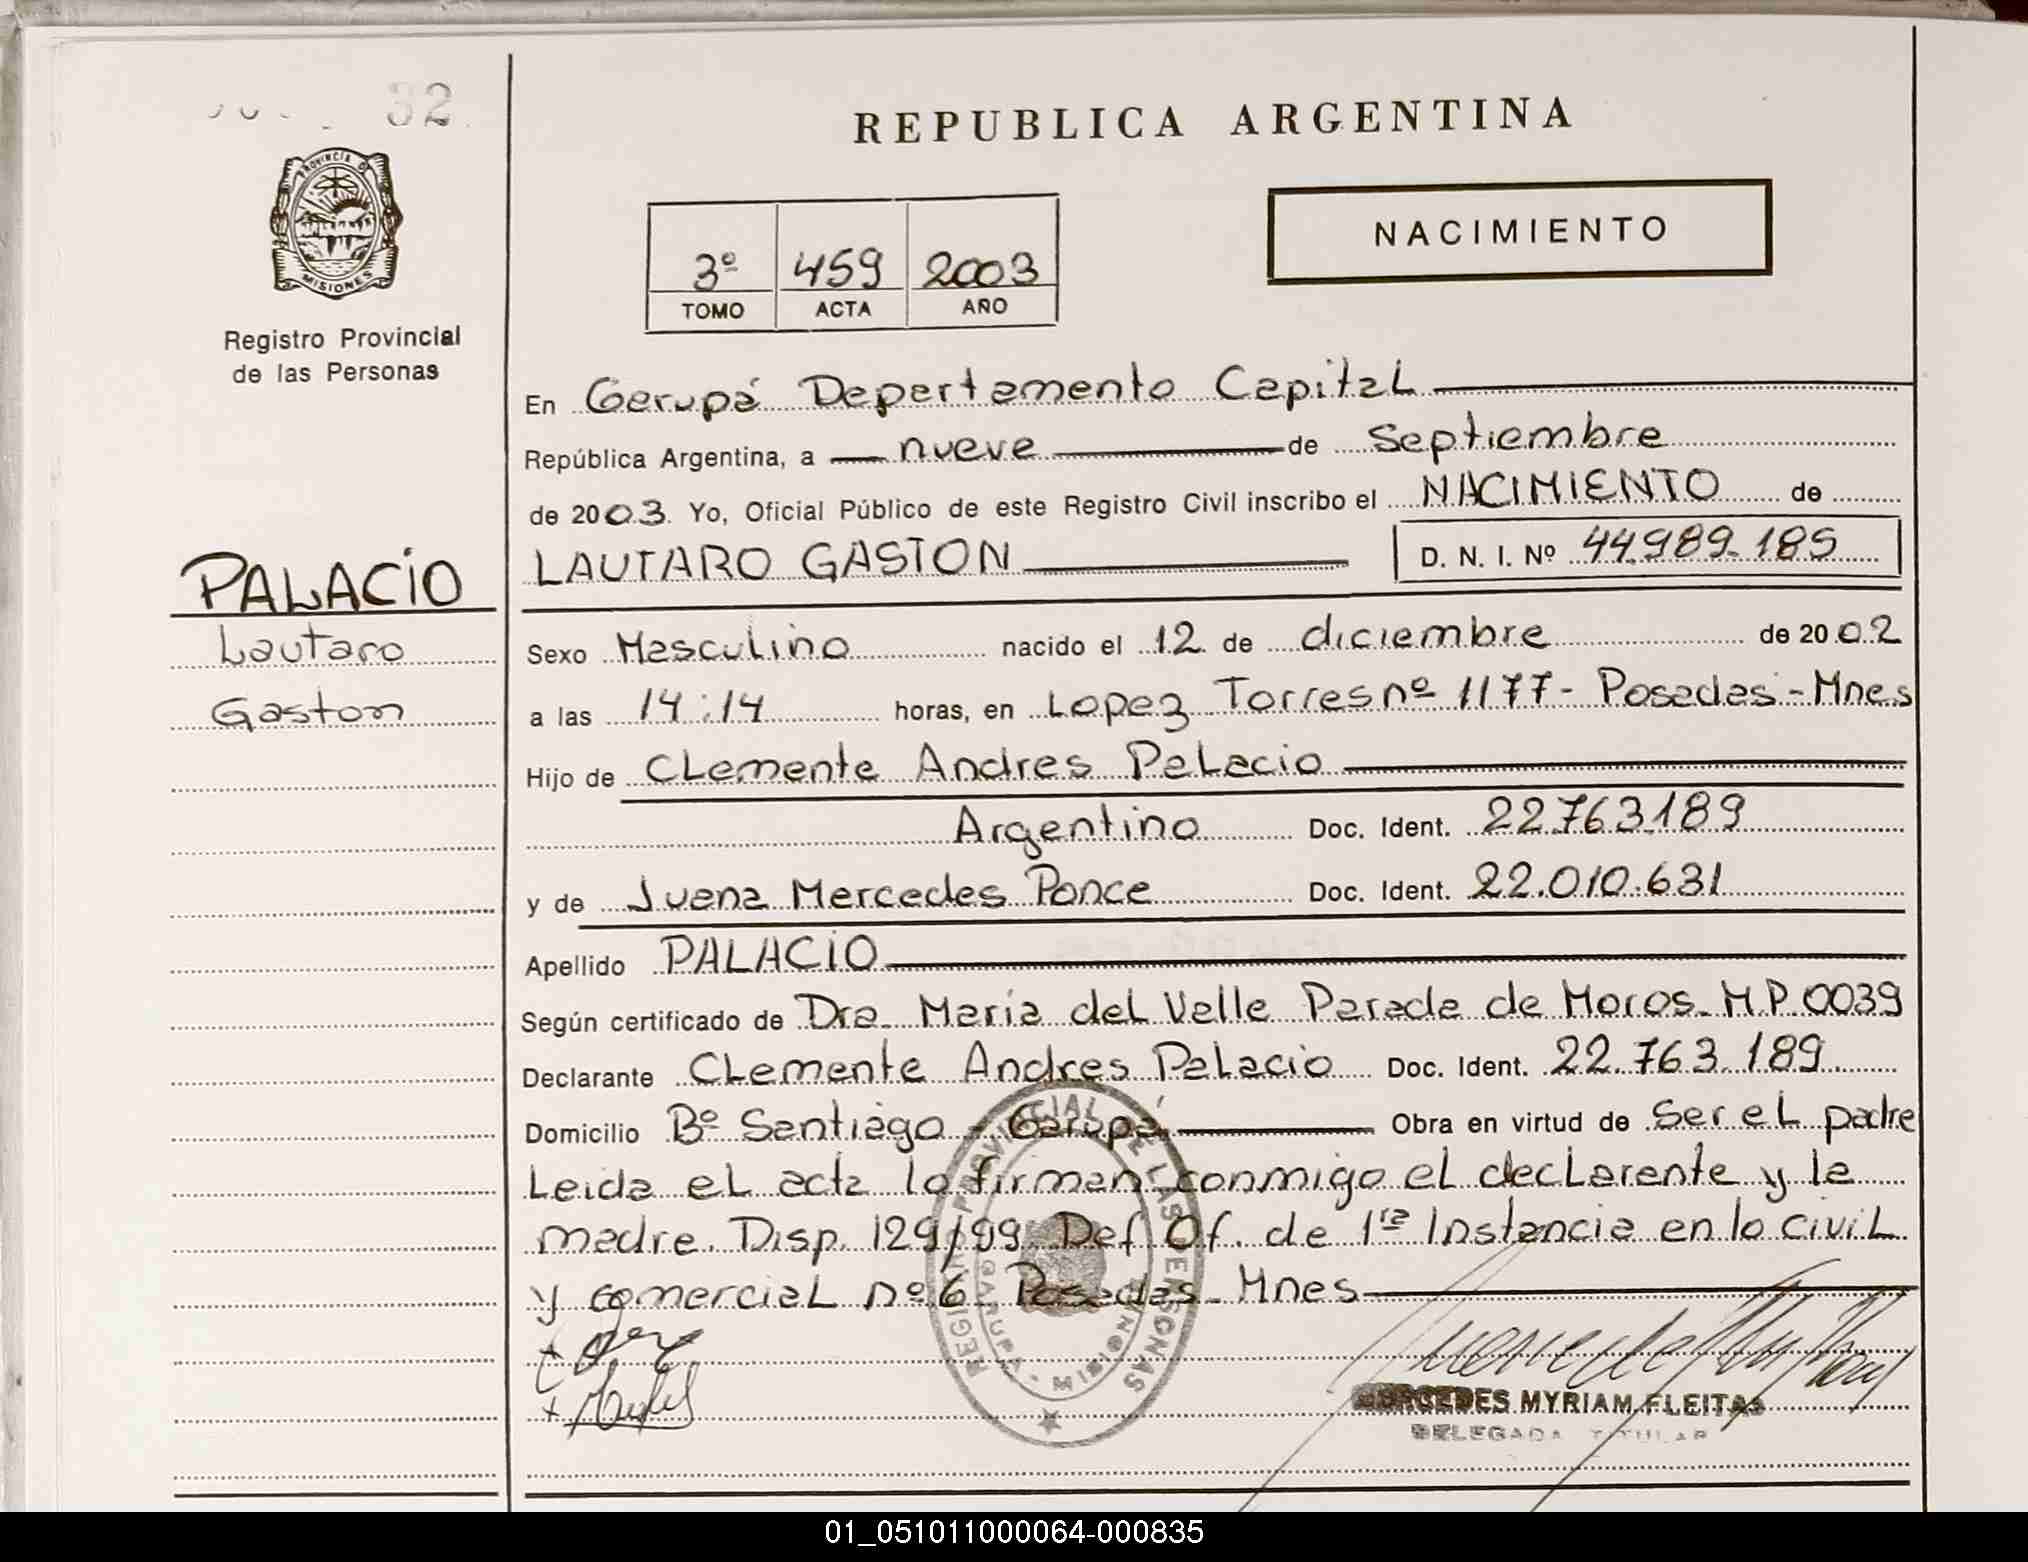 32
PROVINCIA DE
MISIONES
Registro Provincial
de las Personas
REPUBLICA ARGENTINA
NACIMIENTO
3º 459 2003
TOMO ACTA AÑO
En Garupá Departamento Capital
República Argentina, a nueve de Septiembre
de 2003. Yo, Oficial Público de este Registro Civil inscribo el NACIMIENTO de
LAUTARO GASTON D. N. I. Nº 44.989.185
PALACIO
Lautaro
Gaston
Sexo Masculino nacido el 12 de diciembre de 2002
a las 14:14 horas, en Lopez Torres nº 1177- Posadas - Mnes
Hijo de Clemente Andres Palacio
Argentino Doc. Ident. 22.763.189
y de Juana Mercedes Ponce Doc. Ident. 22.010.631
Apellido PALACIO
Según certificado de Dra. Maria del Valle Parada de Moros. M.P. 0039
Declarante Clemente Andres Palacio Doc. Ident. 22.763.189
Domicilio Bº Santiago - Garupá Obra en virtud de Ser el padre
Leida el acta la firman conmigo el declarante y la
madre. Disp. 129/99 Def. Of. de 1ra Instancia en lo civil
y comercial nº 6 Posadas - Mnes
REGISTRO PROVINCIAL DE LAS PERSONAS
GARUPA - MISIONES
MERCEDES MYRIAM FLEITAS
DELEGADA TITULAR
01_051011000064-000835